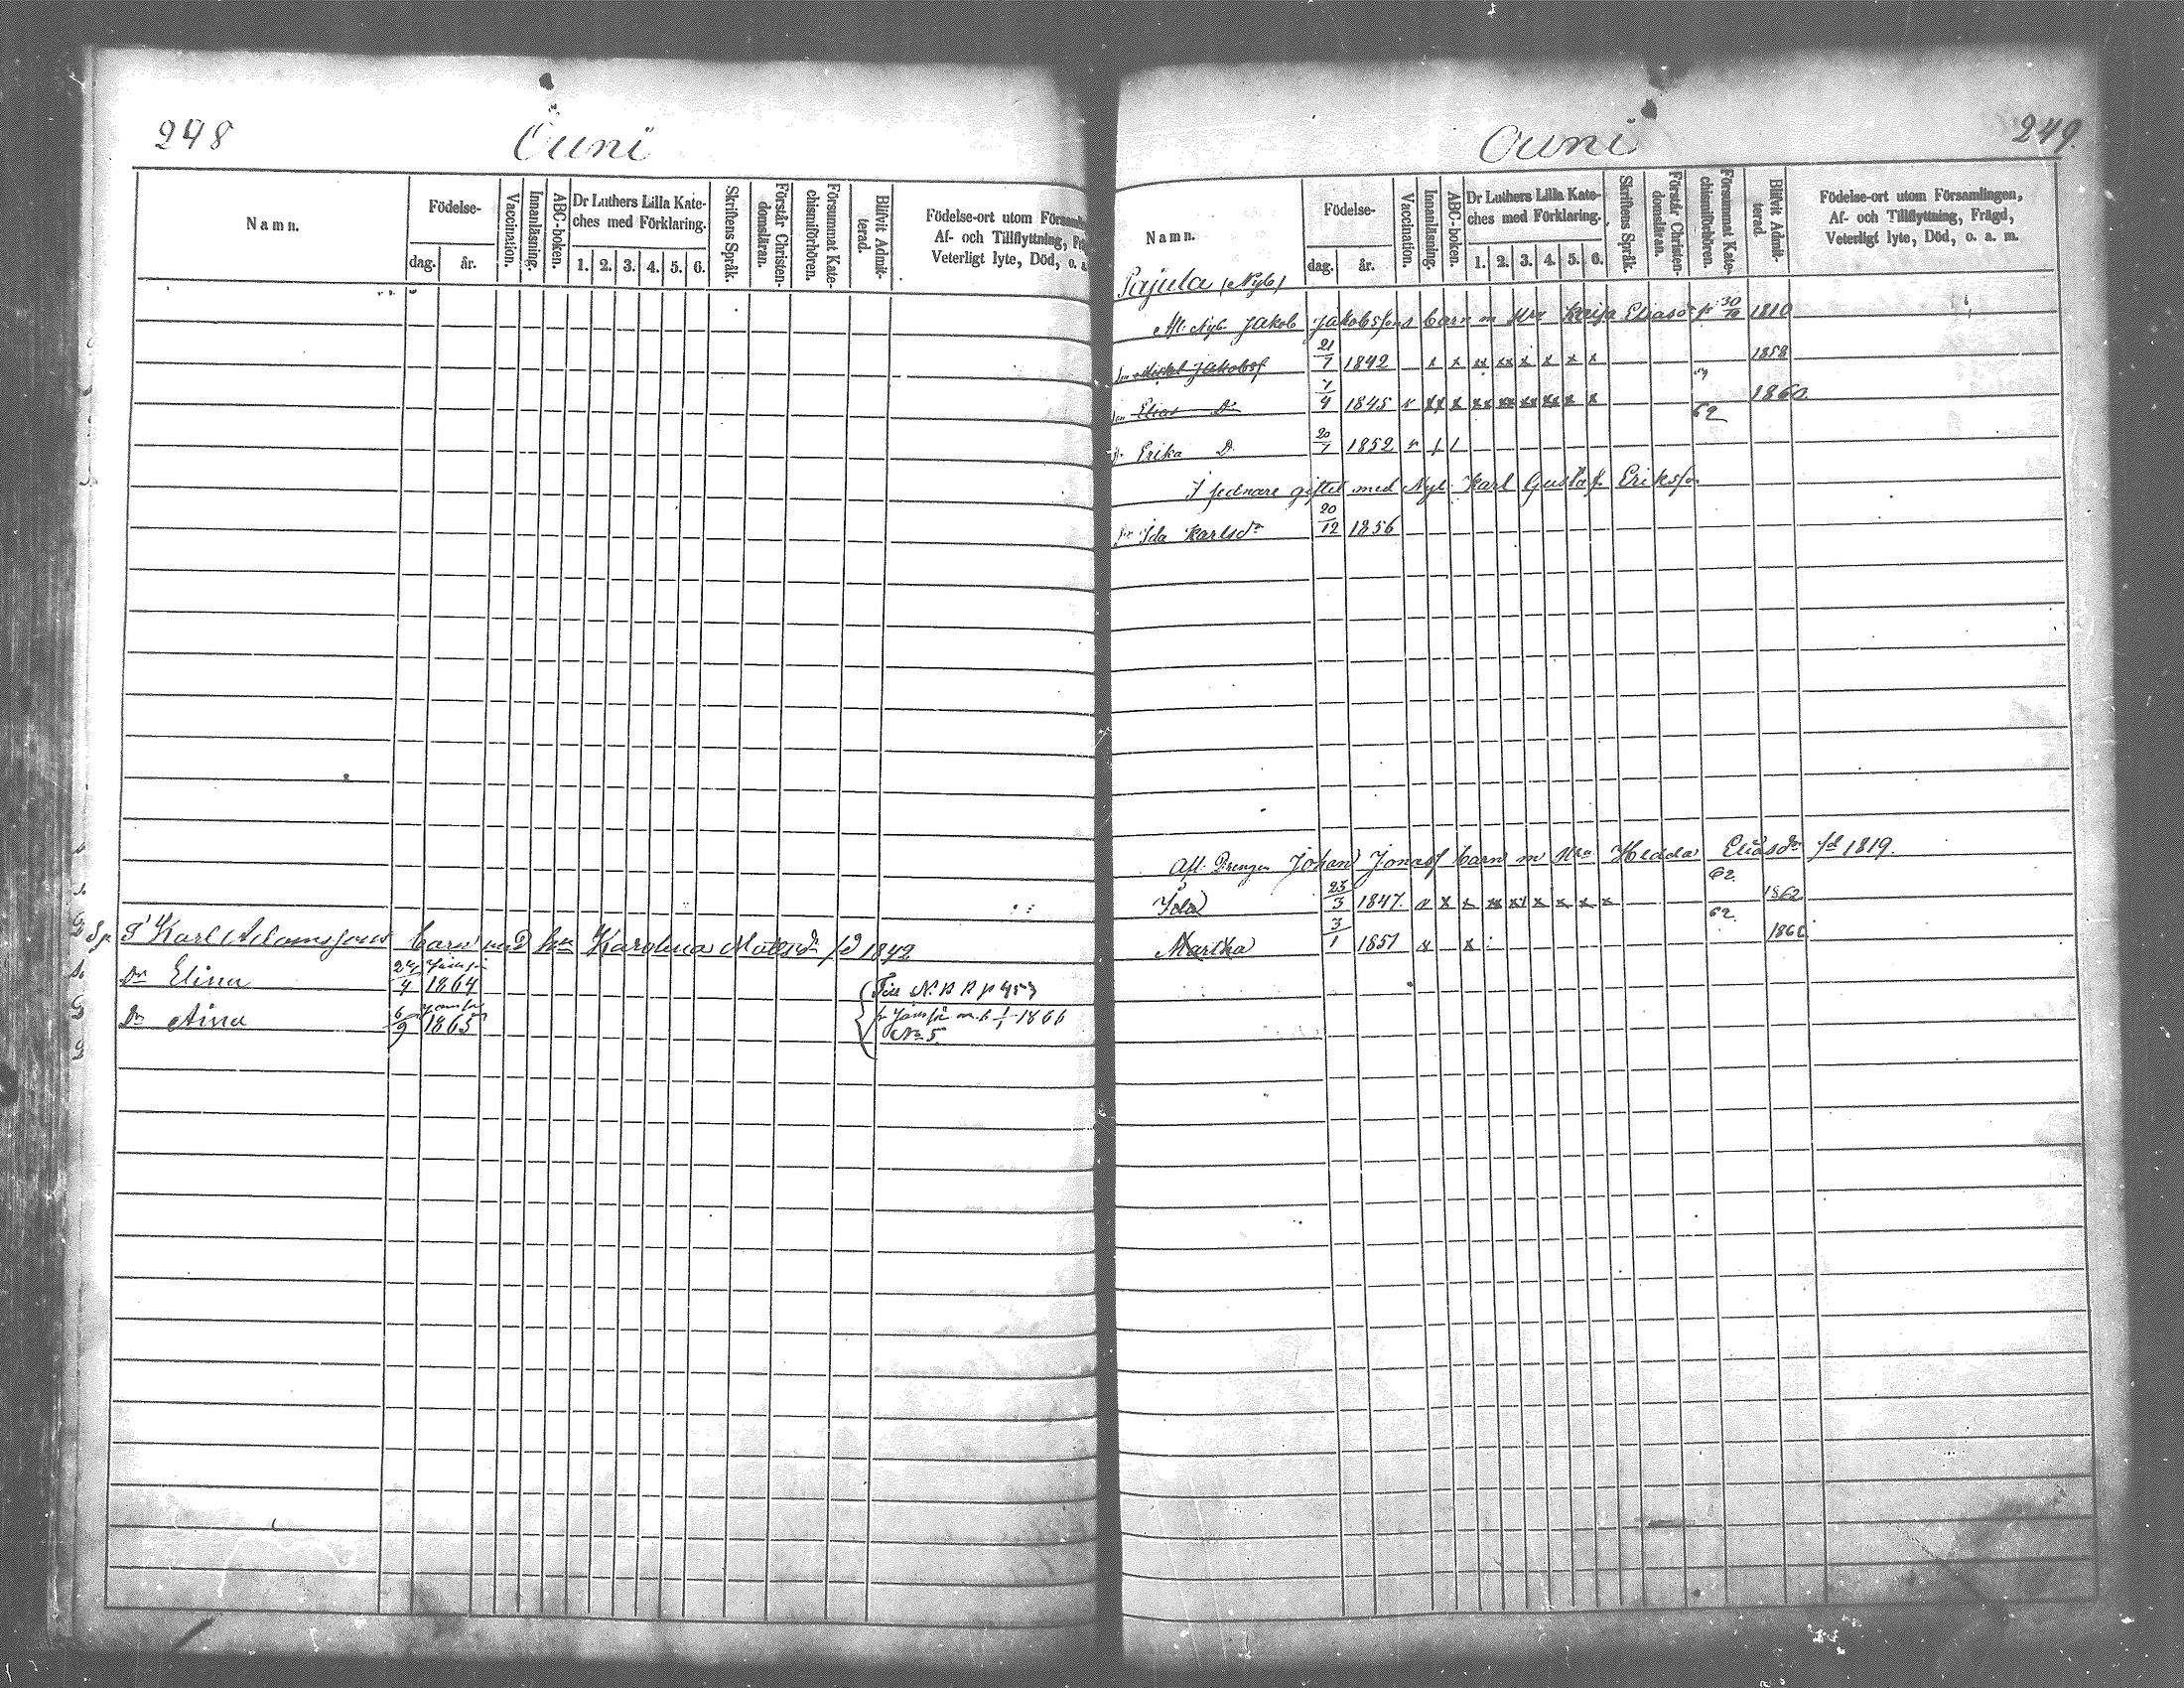 248
Ouni
Namn.
Födelse-
dag.
år.
Vaccination.
Innanläsning.
ABC-boken.
Dr Luthers Lilla Kate-
ches med Förklaring.
1. 2. 3. 4. 5. 6.
Skriftens Språk.
Förstår Christen-
domsläran.
Försummat Kate-
chismiförhören.
Blifvit Admit-
terad.
Födelse-ort utom
Af- och Tillflyttning,
Veterligt lyte, Död, o. a.
Karl Adamssons barn med Karolina Matsdr 1842
Dr Elina 24/4 1864
Dr Aina 6/9 1865
Till N. B. p 457
1866
No 5.
Ouni
249.
Namn.
Födelse-
dag.
år.
Vaccination.
Innanläsning.
ABC-boken.
Dr Luthers Lilla Kate-
ches med Förklaring.
1. 2. 3. 4. 5. 6.
Skriftens Språk.
Förstår Christen-
domsläran.
Försummat Kate-
chismiförhören.
Blifvit Admit-
terad.
Födelse-ort utom Församlingen,
Af- och Tillflyttning, Frägd,
Veterligt lyte, Död, o. a. m.
Pajula (Nyb)
Afl. Nyb. Jakob Jakobssons barn m Kaisa Eliasdr 30/10 1810
Mickel Jakobss 21/7 1842 x x xx xx x x x x 1858
Elias D. 7/4 1845 v xx x xx xx xx xx x x 62 1860
Erika D. 20/7 1852 v / /
I sednare giftet med Nyb Karl Gustaf Eriksson
Ida Karlsdr 20/12 1856
Afl. Drengen Johan Jonass barn m Hedda Eliasdr fd 1819.
Ida 23/3 1847. v x x xx xx x x x x 62. 1862
Martha 3/1 1851 v x 62. 1860